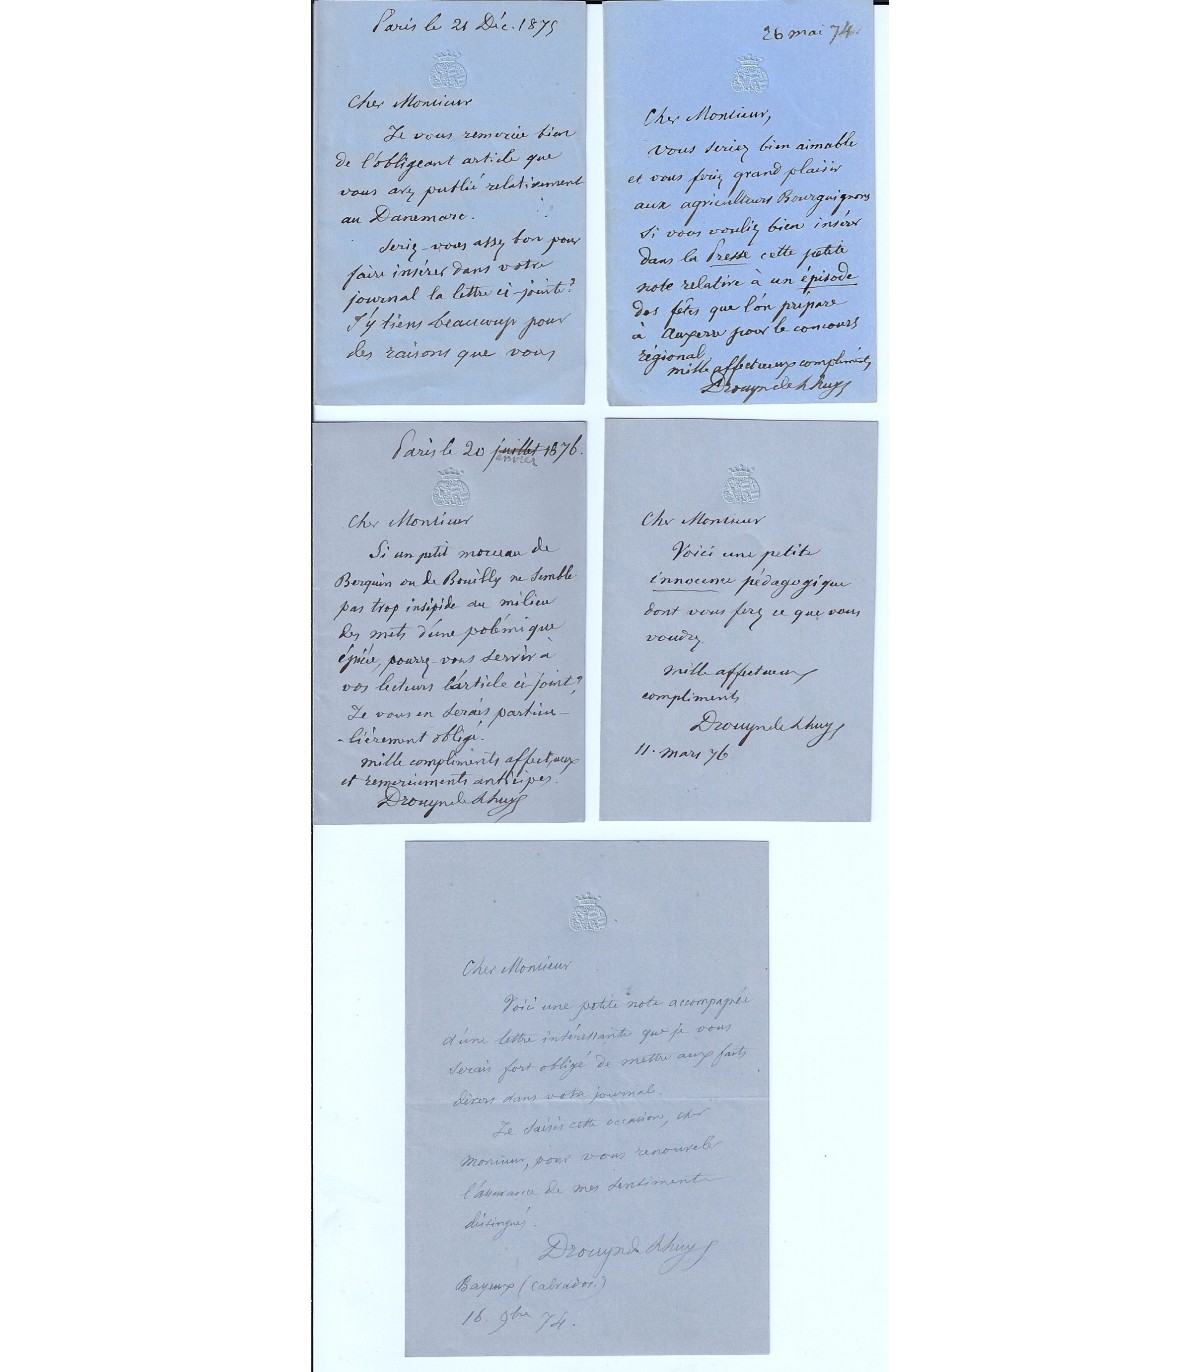 Paris le 21 Déc. 1875
Cher Monsieur
Je vous remercie bien
de l'obligeant article que
vous avez publié relativement
au Danemarc.
Seriez-vous assez bon pour
faire insérer dans votre
journal la lettre ci-jointe?
J'y tiens beaucoup pour
des raisons que vous
26 mai 74.
Cher Monsieur,
Vous seriez bien aimable
et vous feriez grand plaisir
aux agriculteurs Bourguignons
si vous vouliez bien insérer
dans la Presse cette petite
note relative à un épisode
des fêtes que l'on prépare
à Auxerre pour le concours
régional.
Mille affectueux compliments
Drouyn de Lhuys
Paris le 20 juillet 1876.
janvier
Cher Monsieur
Si un petit morceau de
Berquin ou de Bouilly ne semble
pas trop insipide au milieu
des mets d'une polémique
épicée, pourrez-vous servir à
vos lecteurs l'article ci-joint?
Je vous en serais particu-
-lièrement obligé.
Mille compliments affectueux
et remerciements anticipés.
Drouyn de Lhuys
Cher Monsieur
Voici une petite
innocence pédagogique
dont vous ferez ce que vous
voudrez.
Mille affectueux
compliments
Drouyn de Lhuys
11. mars 76
Cher Monsieur
Voici une petite note accompagnée
d'une lettre intéressante que je vous
serais fort obligé de mettre aux faits
divers dans votre journal.
Je saisis cette occasion, cher
Monsieur, pour vous renouveler
l'assurance de mes sentiments
distingués.
Drouyn de Lhuys
Bayeux (Calvados.)
16. 9bre 74.